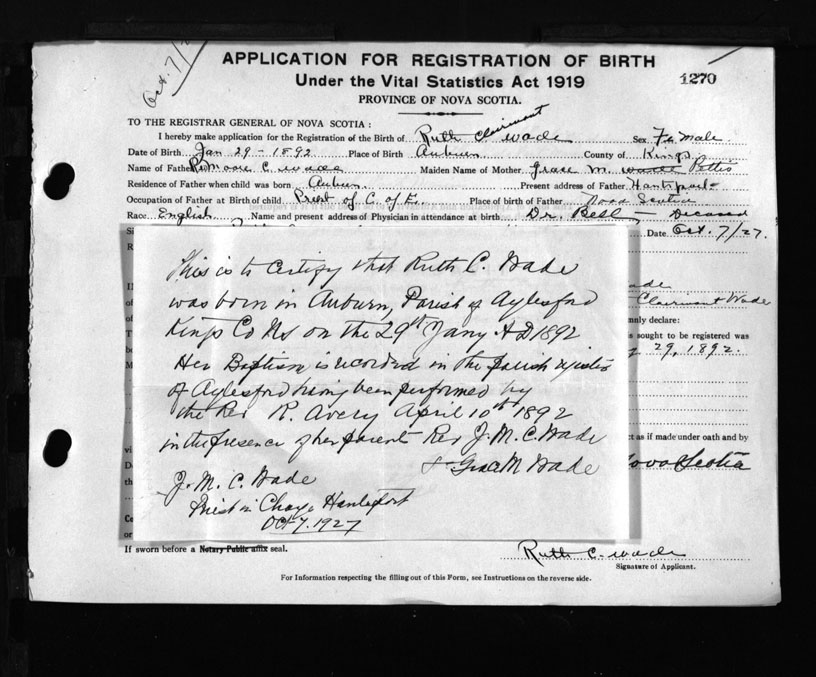 Oct. 7/2
APPLICATION FOR REGISTRATION OF BIRTH
Under the Vital Statistics Act 1919
1270
PROVINCE OF NOVA SCOTIA.
TO THE REGISTRAR GENERAL OF NOVA SCOTIA :
I hereby make application for the Registration of the Birth of Ruth Clairmont Wade Sex Female
Date of Birth Jan 29 - 1892 Place of Birth Auburn County of Kings
Name of Father C. Wade Maiden Name of Mother Grace M. Pettis
Residence of Father when child was born Auburn Present address of Father Hantsport
Occupation of Father at Birth of child Priest of C. of E. Place of birth of Father Nova Scotia
Race English Name and present address of Physician in attendance at birth Dr. Bell - Deceased
Date Oct. 7/27.
This is to certify that Ruth C. Wade
was born in Auburn, Parish of Aylesford
Kings Co NS on the 29th Jany A D 1892
Her Baptism is recorded in the parish register
of Aylesford having been performed by
the Rev R. Avery April 10th 1892
in the presence of her parent Rev J. M. C. Wade
& Grace M Wade
J. M. C. Wade
Priest in Charge Hantsport
Oct 7. 1927
ade
Clairmont Wade
nly declare:
sought to be registered was
29, 1892.
ct as if made under oath and by
Nova Scotia
If sworn before a Notary Public affix seal.
Ruth C. Wade
Signature of Applicant.
For Information respecting the filling out of this Form, see Instructions on the reverse side.